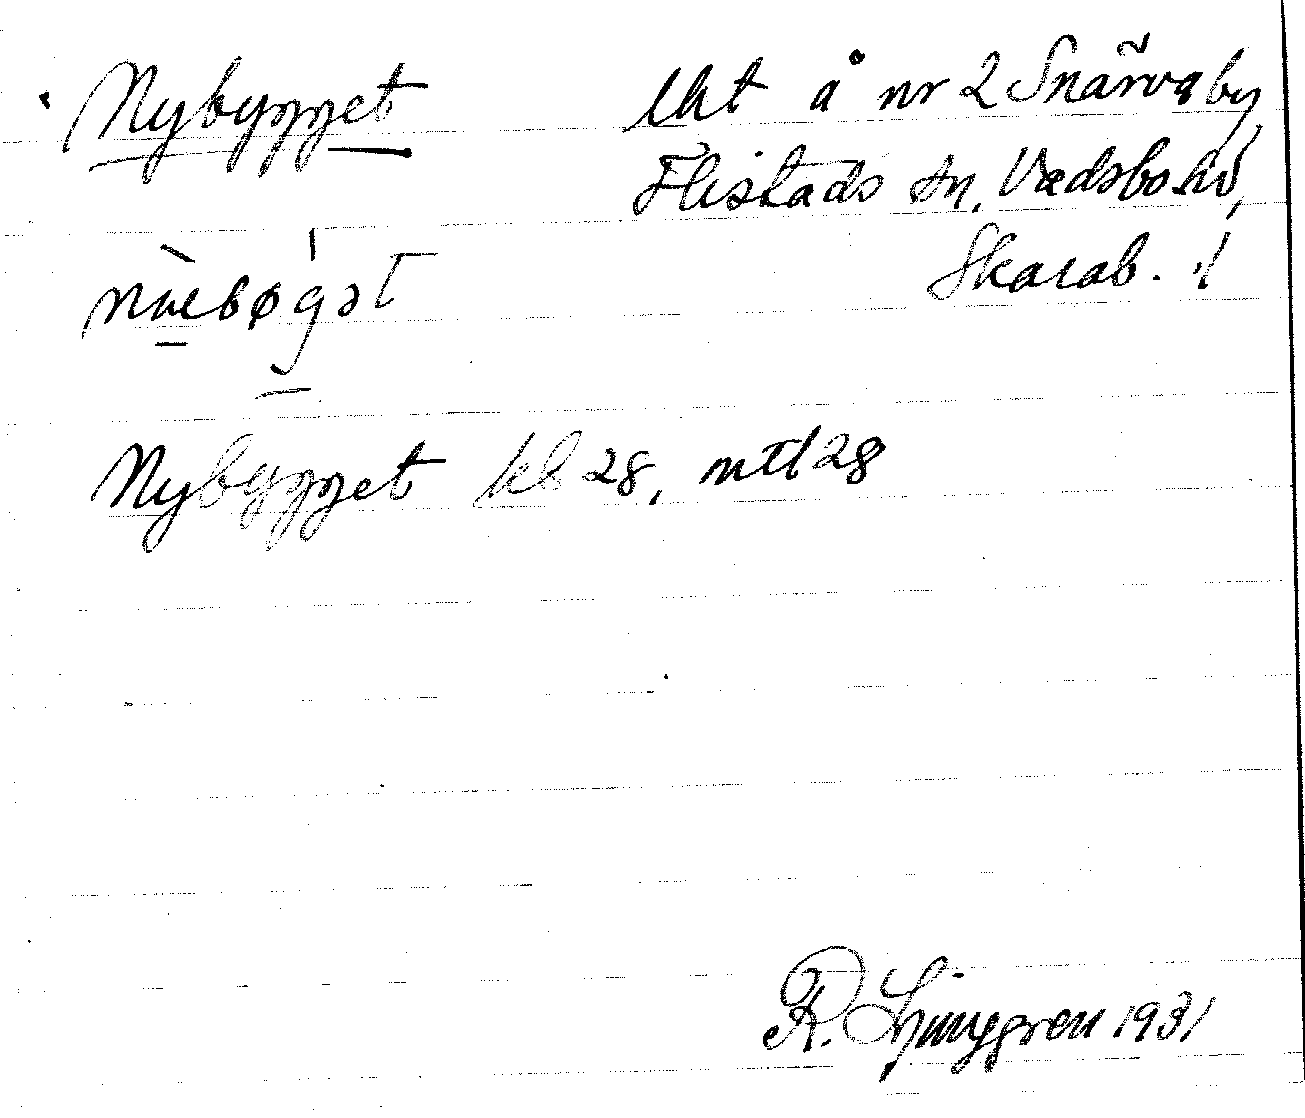 Nybygget
lht å nr 2 Snärvaby
Flistads sn, Vadsbo hd,
Skarab. l
Nybygget kb 28, mtl 28
R. Ljunggren 1931